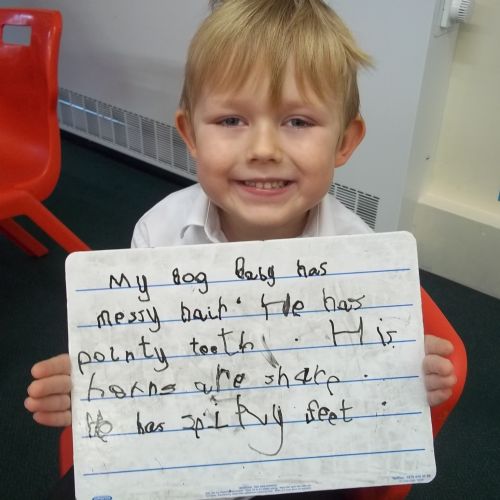 My bog Baby has
messy hair. He has
pointy teeth. His
horns are sharp.
He has spiky feet.